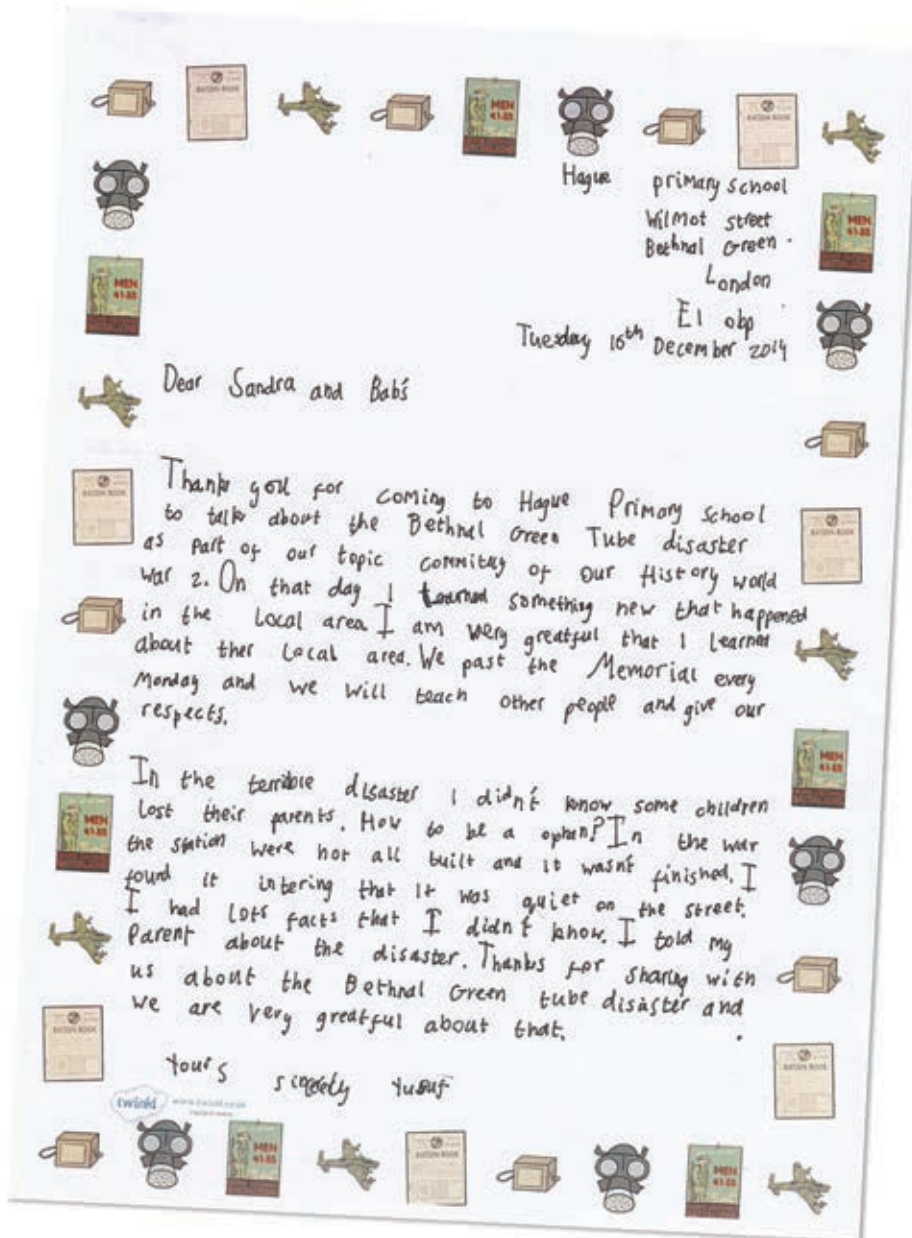 Hague primary school
Wilmot street
Bethnal Green.
London
E1 obp
Tuesday 16th December 2014
Dear Sandra and Bab's
Thank you for coming to Hague Primary School
to talk about the Bethnal Green Tube disaster
as part of our topic commitey of our History world
war 2. On that day I learned something new that happened
in the Local area I am very greatful that I learned
about ther Local area. We past the Memorial every
Monday and we will teach other people and give our
respects.
In the terrible disaster I didn't know some children
Lost their parents. How to be a ophan? In the war
the station were not all built and it wasn't finished. I
found it intering that it was quiet on the street.
I had Lots facts that I didn't know. I told my
Parent about the disaster. Thanks for sharing with
us about the Bethnal Green tube disaster and
we are very greatful about that.
Yours sincerely Yusuf
twinkl
RATION BOOK
MEN
41-55